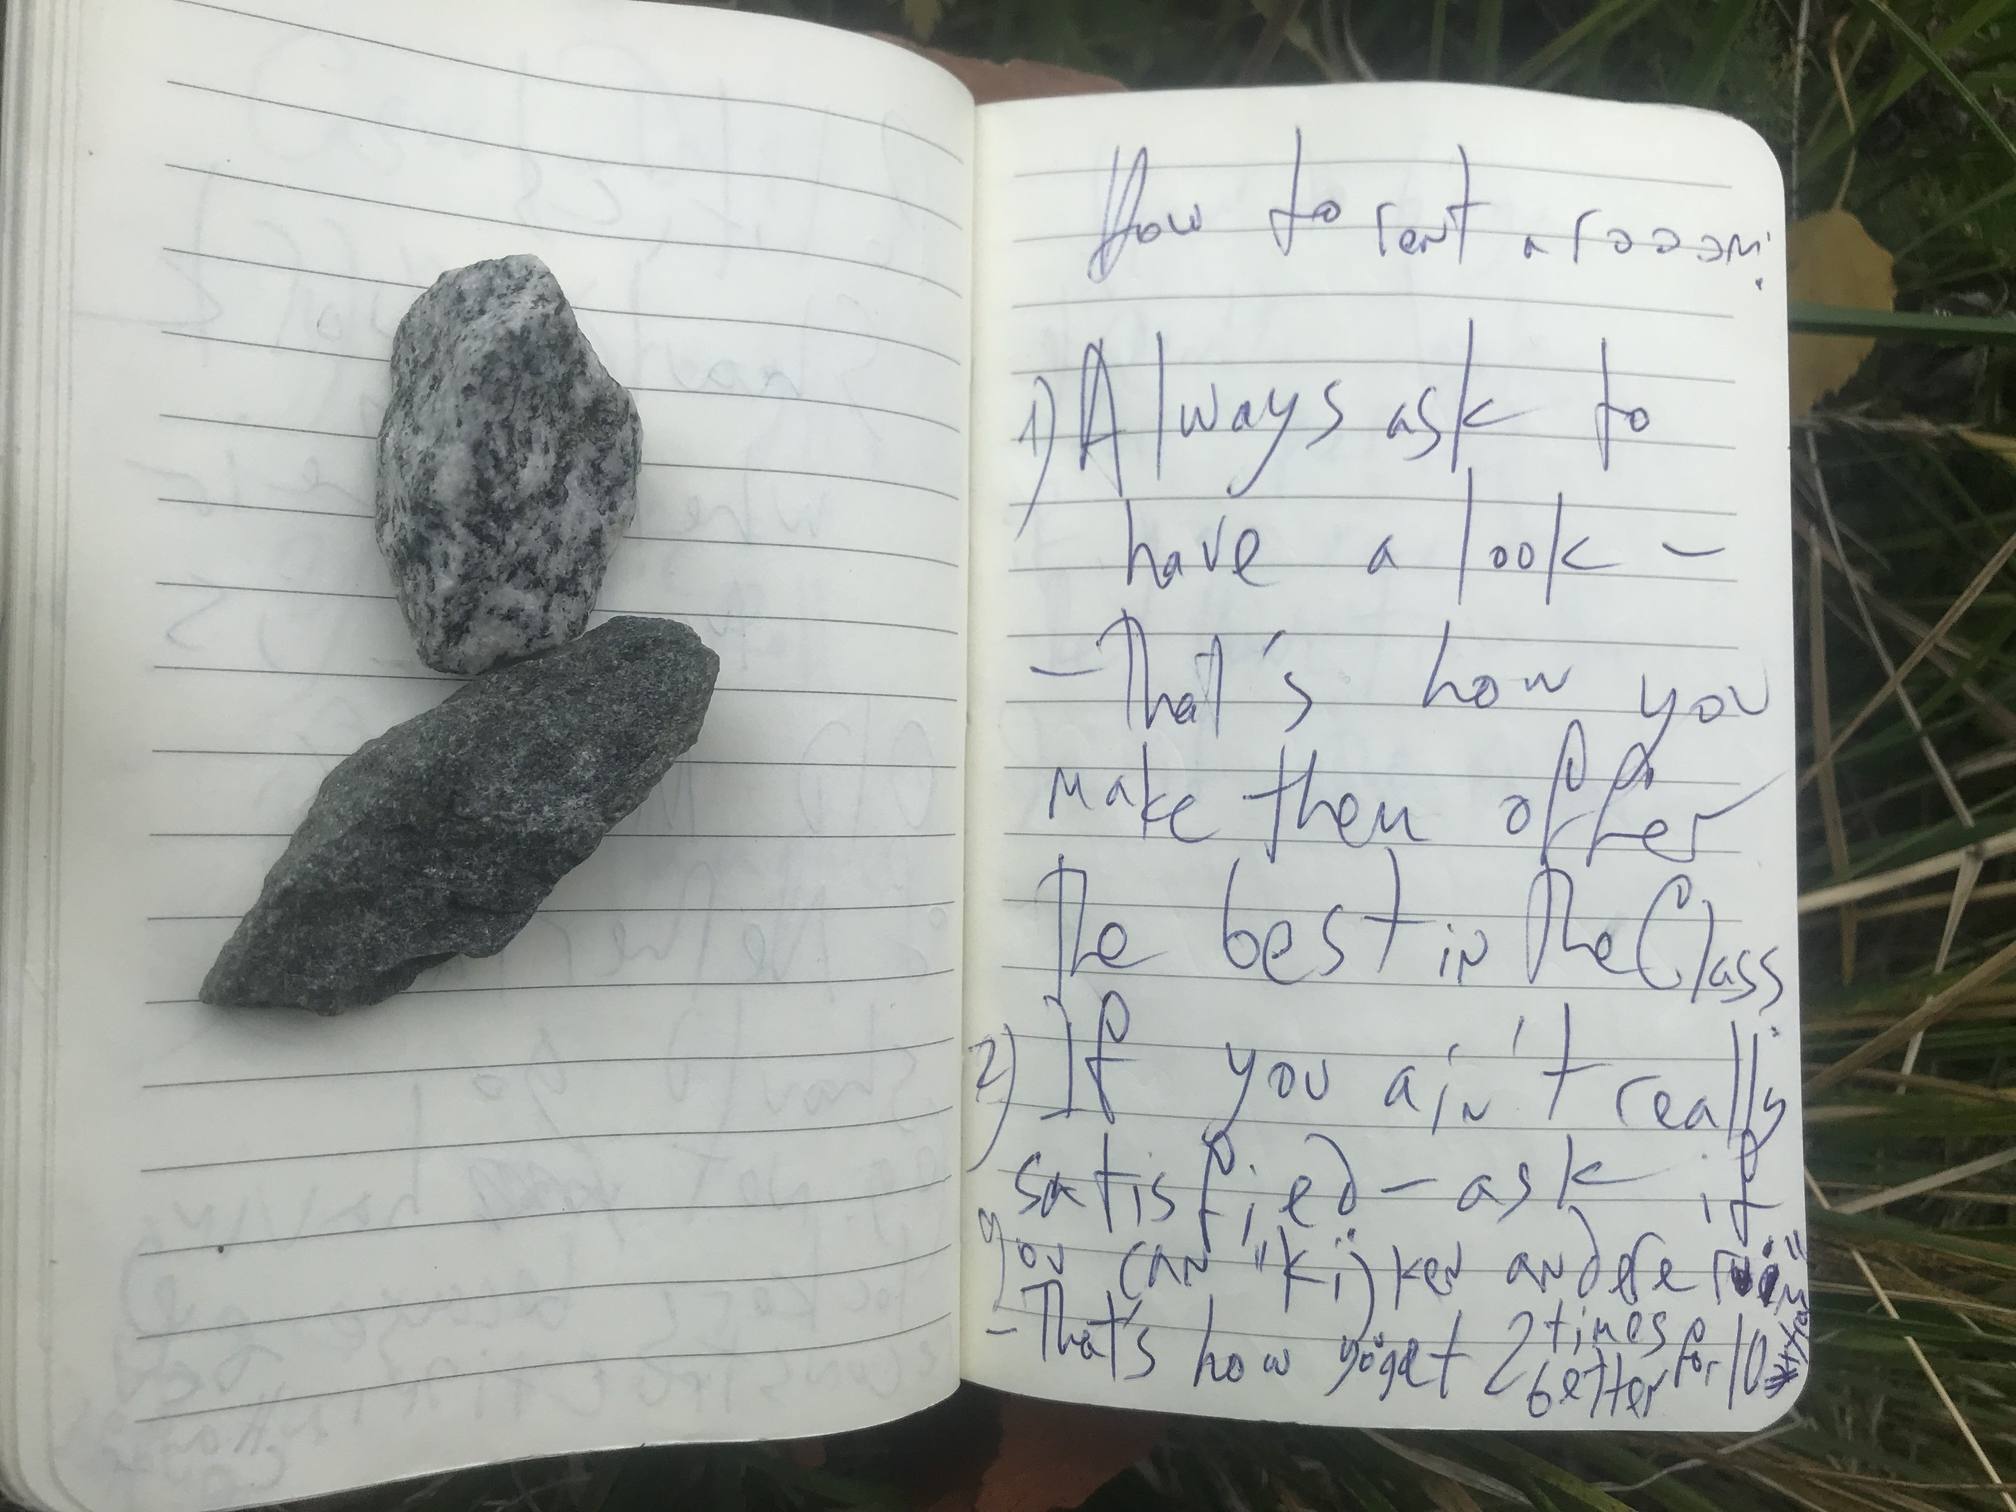 How to rent a rooom!
1) Always ask to
have a look -
- That's how you
make them offer
the best in the Class
2) If you ain't really
satisfied - ask if
you can "kijken andere
- That's how you get 2 times better for 10 extra